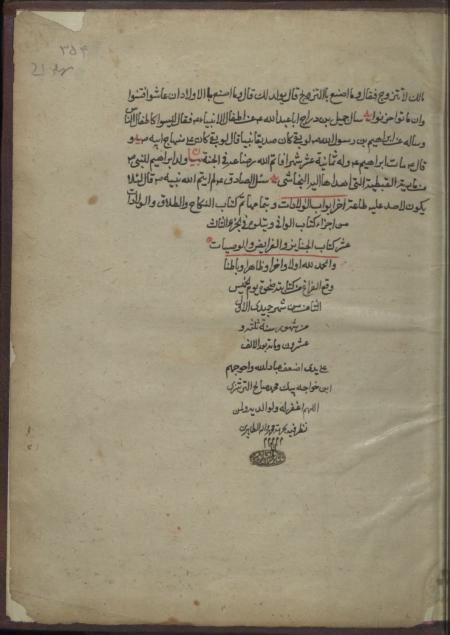 مالك لا تتزوج فقال و ما اصنع بالتزويج قال يولد لك قال و ما اصنع بالاولاد ان عاشوا فتنوا
وان ماتوا حزنوا سال جميل بن دراج ابا عبدالله عن اطفال الانبياء فقال ليسوا كاطفال الناس
وساله عن ابراهيم بن رسول الله لو بقي كان صديقا نبيا قال لو بقي كان على منهاج ابيه
قال مات ابراهيم وله ثمانية عشر شهرا فاتم الله رضاعه في الجنة ولد ابراهيم للنبي
من مارية القبطية التي اهداها اليه النجاشي سئل الصادق لم ايتم الله نبيه قال لئلا
يكون لاحد عليه طاعة اخر ابواب الولادات وبتمامها تم كتاب النكاح والطلاق والولادات
من اجزاء كتاب الوافي ويتلوه في الجزء الثالث
عشر كتاب الجنايز والفرايض والوصيات
والحمد لله اولا واخرا وظاهرا وباطنا
وقع الفراغ من كتابته ضحوة يوم الخميس
الثامن من شهر جميدى الاولى
من شهور سنة ثلثة و
عشرون وماية بعد الالف
على يدي اضعف عباد الله واحوجهم
ابن خواجه بيك محمد صالح التبريزي
اللهم اغفر له ولوالديه ولمن
نظر فيه بحرمة محمد واله الطاهرين